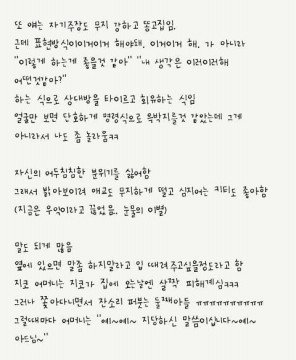 또 얘는 자기주장도 무지 강하고 똥고집임.
근데 표현방식이이거이거 해야돼, 이거이거 해. 가 아니라
"이렇게 하는게 좋을것 같아" "내 생각은 이러이러해
어떤것같아?"
하는 식으로 상대방을 타이르고 회유하는 식임
얼굴만 보면 단호하게 명령식으로 윽박지를것 같았는데 그게
아니라서 나도 좀 놀라움ㅋㅋ
자신의 어두침침한 분위기를 싫어함
그래서 밝아보이려 애교도 무지하게 떨고 심지어는 키티도 좋아함
(지금은 우악이라고 끊었음. 눈물의 이별)
말도 되게 많음
옆에 있으면 말좀 하지말라고 입 때려주고싶을정도라고 함
지코 어머니는 지코가 집에 오는날엔 살짝 피해계심ㅋㅋㅋ
그러나 쫓아다니면서 잔소리 퍼붓는 둘째아들 ㅠㅠㅠㅠㅠㅠㅠㅠㅠㅠ
그럴때마다 어머니는 "예~예~ 지당하신 말씀이십니다~예~
아드님~"